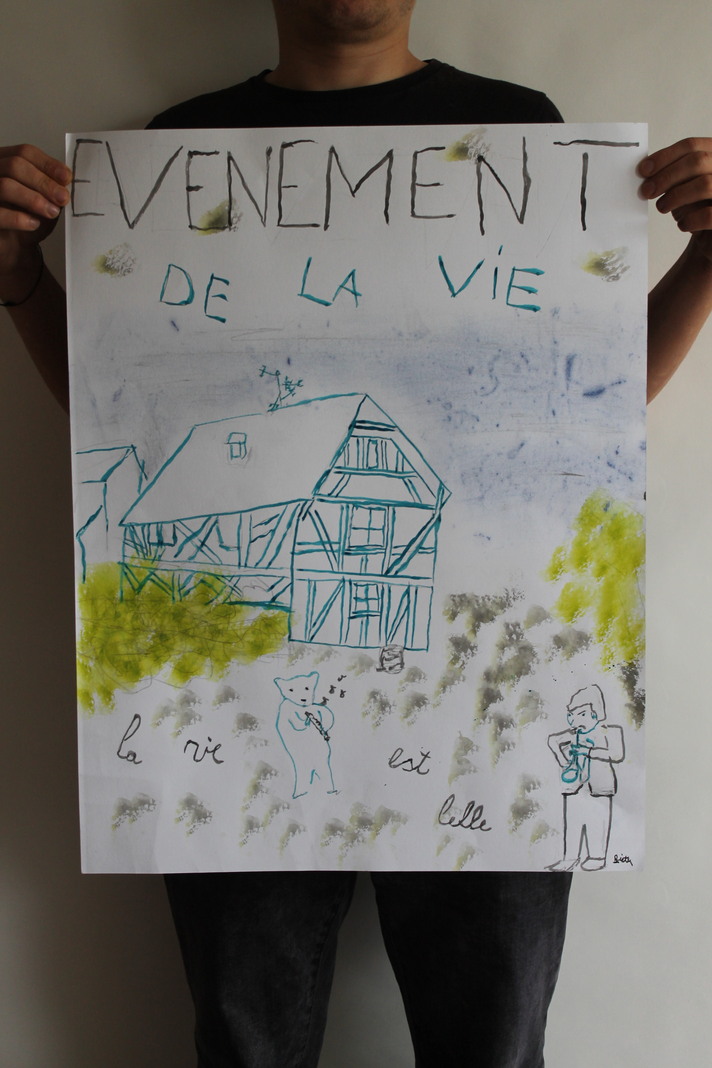 EVENEMENT
DE LA VIE
la vie est belle